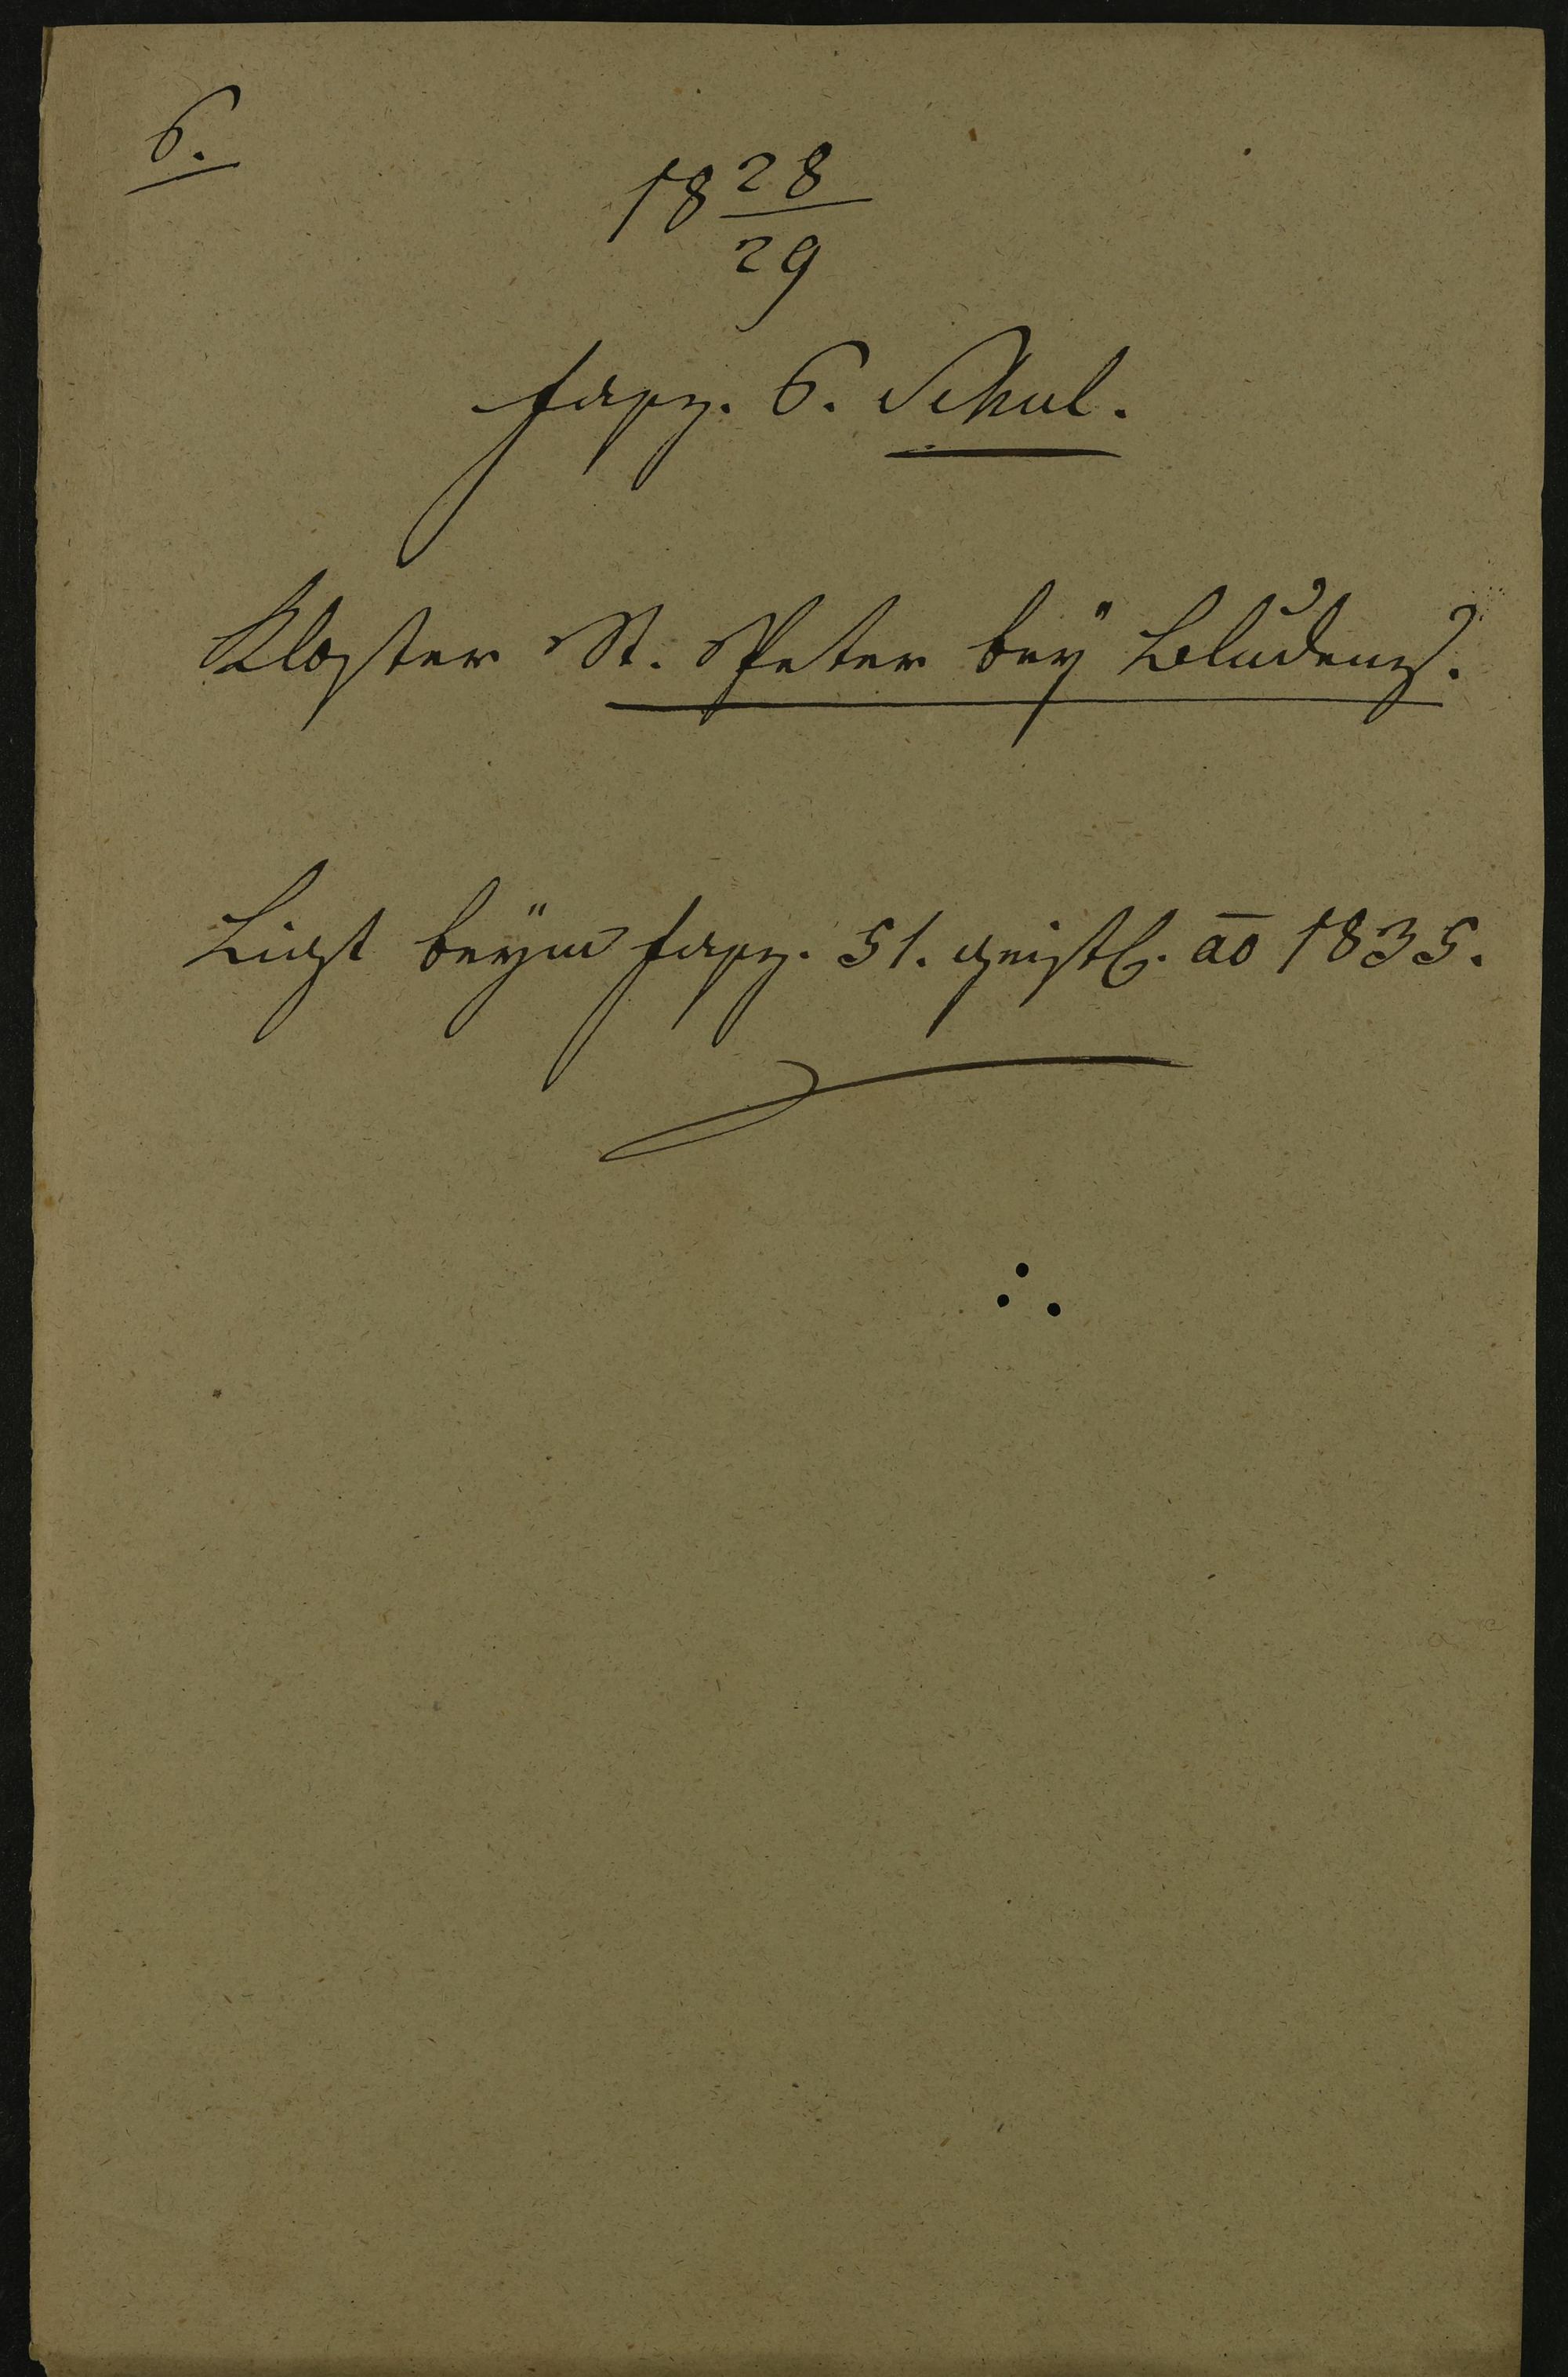 6.
18 28/29
fasz. 6. Schul.
Kloster St. Peter beÿ Bludenz.
Liegt beÿm fasz. 51. geistl. ao 1835.